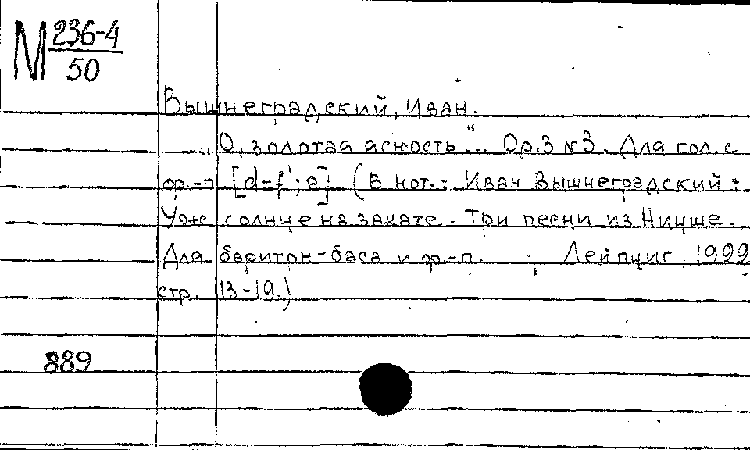 М 236-4
50
Вышнеградский, Иван.
„О, золотая ясность"... Ор. 3 № 3. Для гол. с
ф.-п [d-f'; e] (В нот.: Иван Вышнеградский:
Уже солнце на закате. Три песни из Ницше.
Для баритон-баса и ф-п. Лейпциг 1999
стр. 13-19.)
889